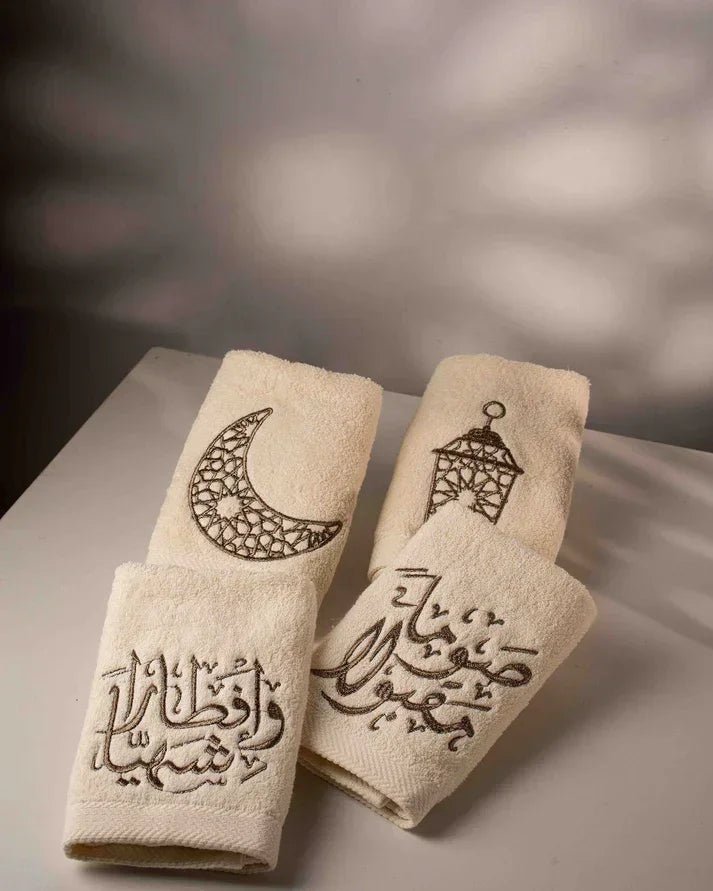 صوماً
مقبولاً
وإفطاراً
شهياً